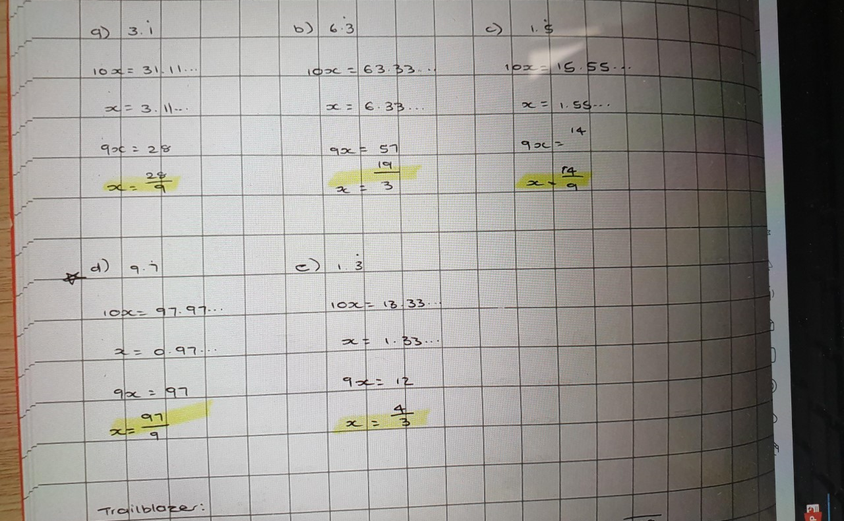 a) 3.1̇
10x = 31.11...
x = 3.11...
9x = 28
x = 28/9
b) 6.3̇
10x = 63.33...
x = 6.33...
9x = 57
x = 19/3
c) 1.5̇
10x = 15.55...
x = 1.55...
9x = 14
x = 14/9
d) 9.7̇
10x = 97.97...
x = 0.97...
9x = 97
x = 97/9
e) 1.3̇
10x = 13.33...
x = 1.33...
9x = 12
x = 4/3
Trailblazer: